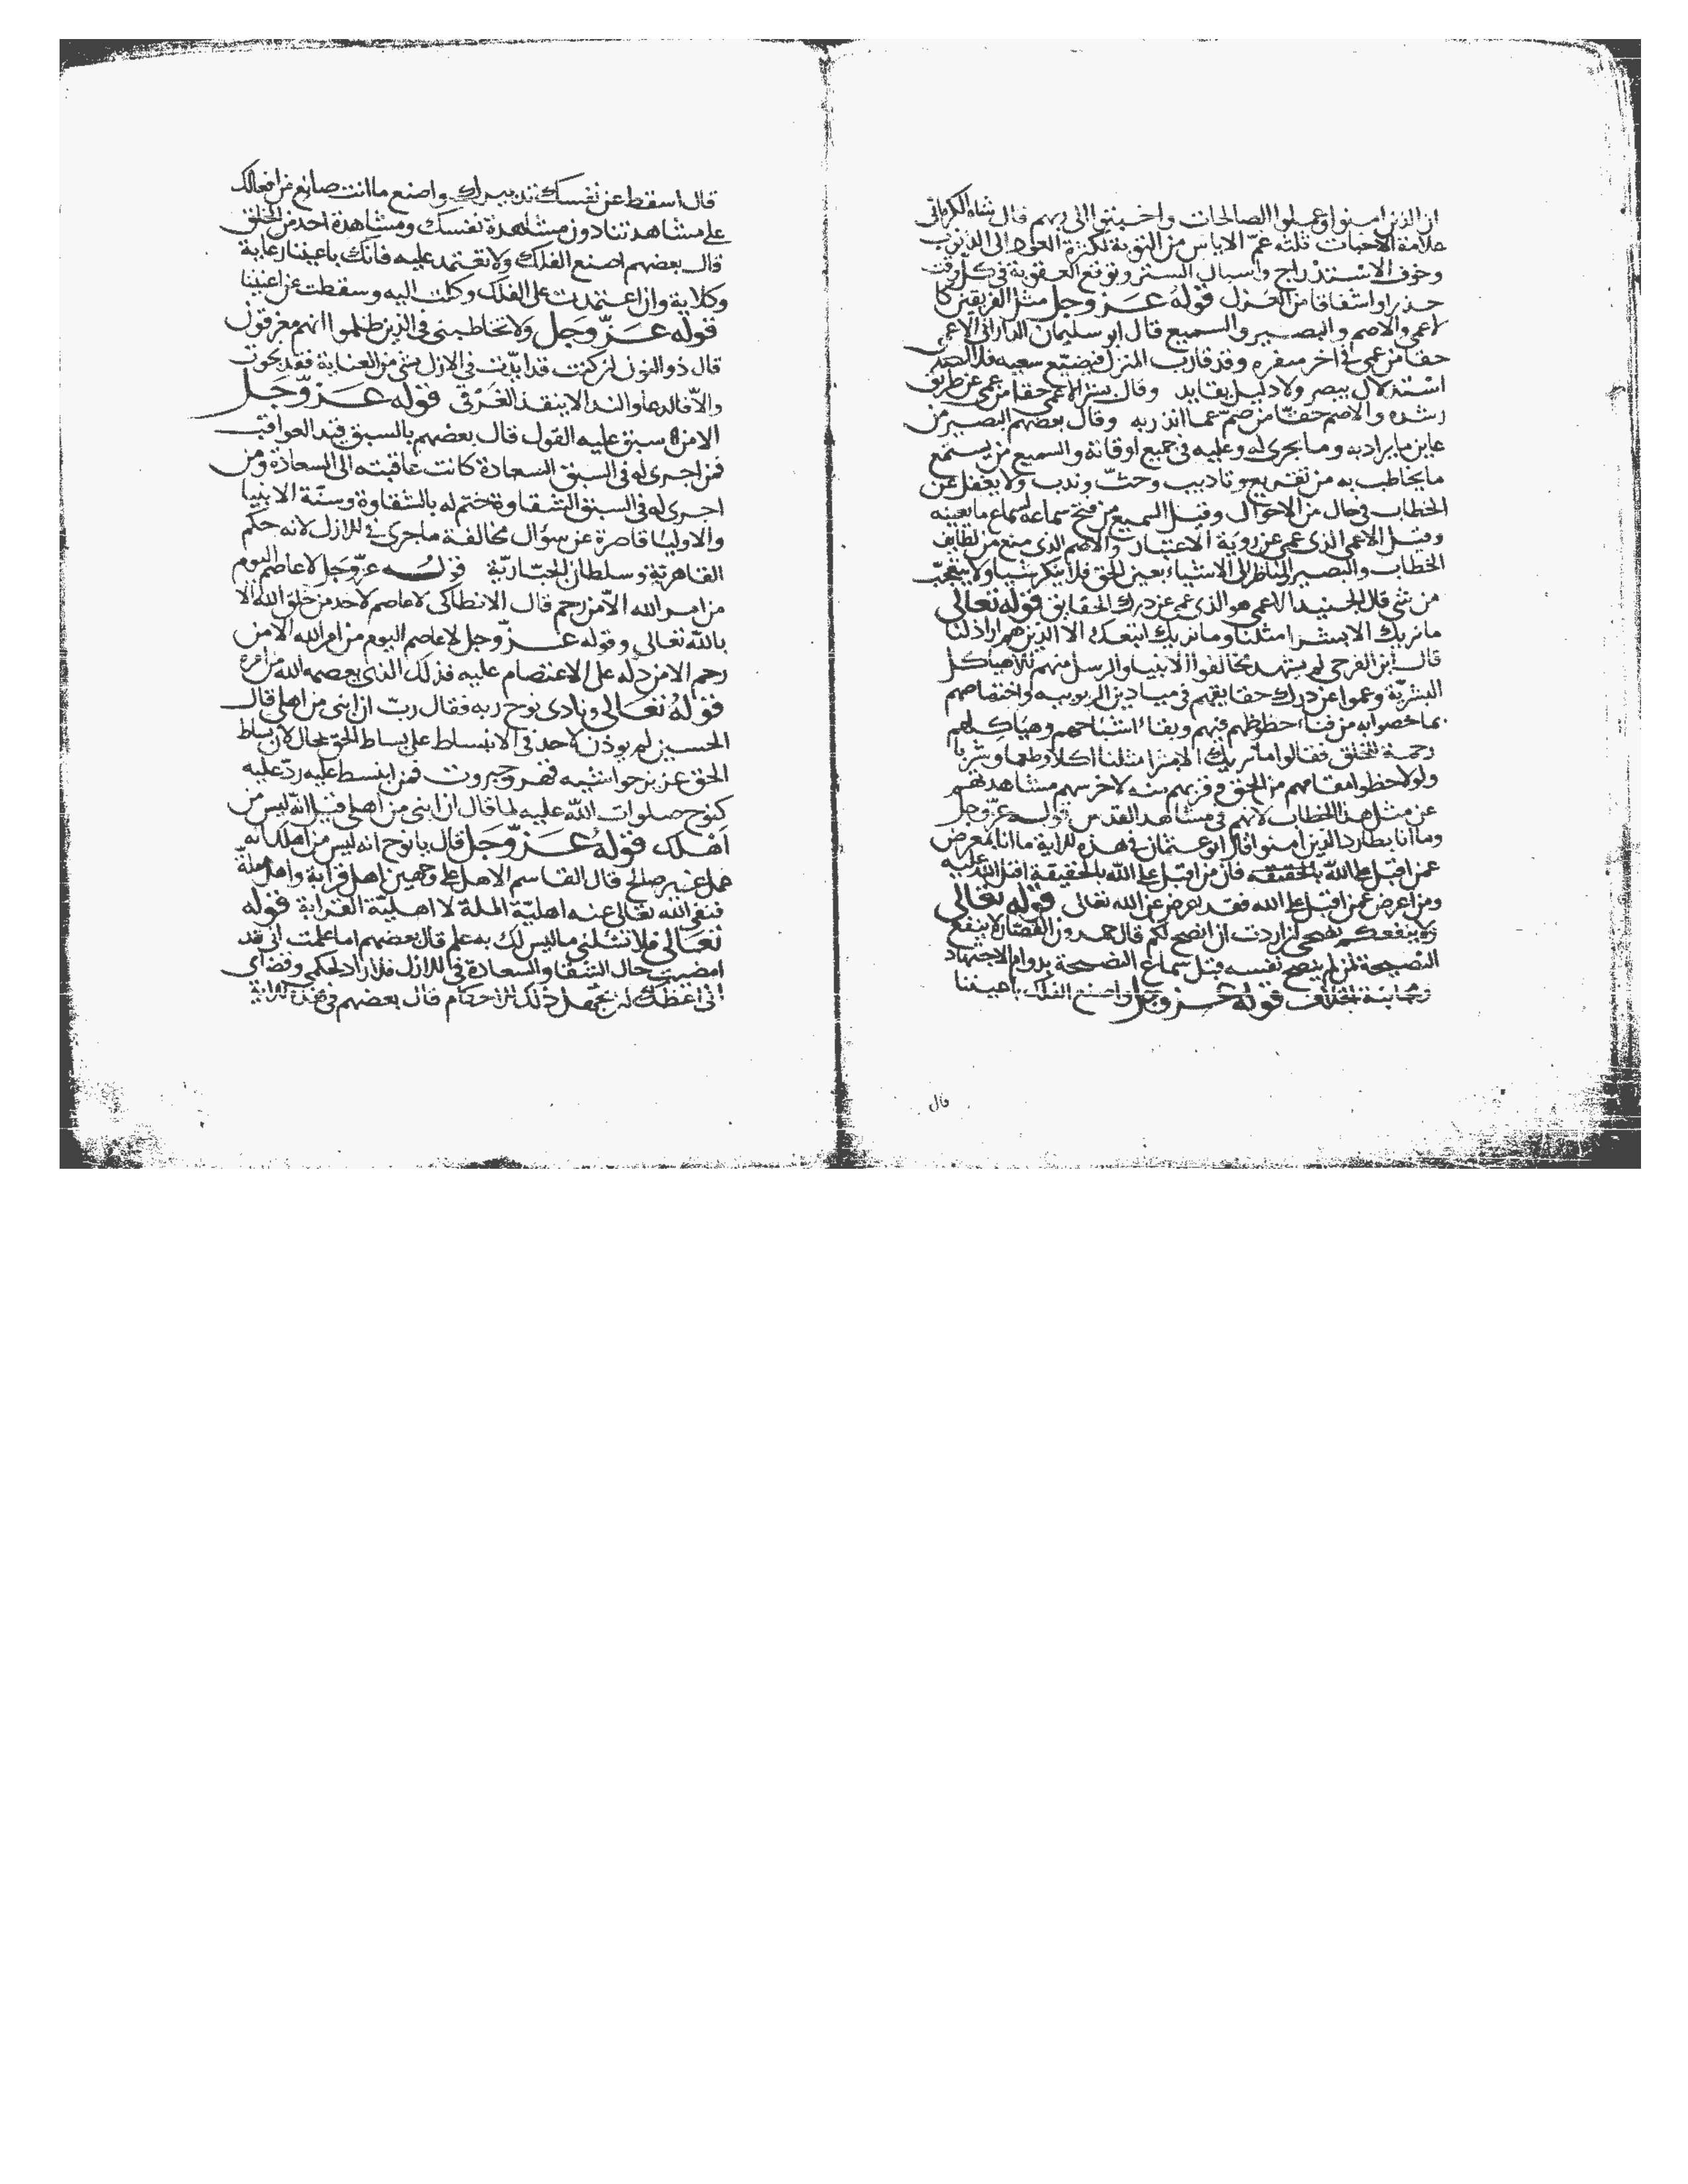 ان الذين امنوا وعملوا الصالحات واخبتوا الى ربهم قال شاه الكرمانى
علامة الاخبات ثلثه غم الاياس من التوبة لكثرة العود الى الذنوب
وخوف الاستدراج واسبال الستر وتوقع العقوبة فى كل وقت
حذرا واشفاقا من العدل قوله عز وجل مثل الفريقين كا
لاعمى والاصم والبصير والسميع قال ابو سليمان الدارانى الاعمى
حقا من عمى فى اخر سفره وقد قارب المنزل فيضيع سعيه فلا
استدلال ببصر ولا دليل يقايد وقال بعضهم الاعمى حقا من عمى عن طريق
رشده والاصم حقا من صم عما انذر ربه وقال بعضهم البصير من
عاين ما يراد به وما يجرى له وعليه فى جميع اوقاته والسميع من يستمع
ما يخاطب به من تقريع وتاديب وحث وندب ولا يغفل عن
الخطاب فى حال من الاحوال وقيل السميع من فتح سماعه لسماع ما يعينه
وقيل الاعمى الذى عمى عن روية الاعتبار والاصم الذى منع من لطايف
الخطاب والبصير الناظر الى الاشياء بعين الحق فلا ينكر شيا ولا يتعجب
من شى قال الجنيد الاعمى هو الذى عمى عن درك الحقايق قوله تعالى
ما نريك الا بشرا مثلنا وما نريك اتبعك الا الذين هم اراذلنا
قال ابن الفرحى لم يشهد مخالفوا الانبيا والرسل منهم الا هياكل
البشرية وعموا عن درك حقايقهم فى ميادين الربوبيه واختصاصهم
بما خصوا به من فناء حظوظهم فيهم وبقاء اشباحهم وهياكلهم
رحمة للخلق فقالوا ما نريك الا بشرا مثلنا اكلا وطعما وشربا
ولو لاحظوا مقامهم من الحق وقربهم منه لاخرسهم مشاهدتهم
عن مثل هذا الخطاب لانهم فى مشاهد القدس قوله عز وجل
وما انا بطارد الذين امنوا قال ابو عثمان فى هذه الاية ما انا بمعرض
عمن اقبل على الله بالحقيقه فان من اقبل على الله بالحقيقة اقبل الله عليه
ومن اعرض عمن اقبل على الله فقد اعرض عن الله تعالى قوله تعالى
ولا ينفعكم نصحى ان اردت ان انصح لكم قال حمدون القصار لا ينفع
النصيحة لمن لم ينصح نفسه قبل سماع النصيحة بدوام الاجتهاد
ومجانبة الخلاف قوله عز وجل واصنع الفلك باعيننا
قال
قال اسقط عن نفسك تدبيرك واصنع ما انت صانع من افعالك
على مشاهدتنا دون مشاهدة نفسك ومشاهدة احد من الخلق
قال بعضهم اصنع الفلك ولا تعتمد عليه فانك باعيننا رعاية
وكلاية وان اعتمدت على الفلك وكلت اليه وسقطت عن اعيننا
قوله عز وجل ولا تخاطبنى فى الذين ظلموا انهم مغرقون
قال ذو النون ان كنت قد ايدت فى الازل بشى من العناية فقد نجوت
والا فالدعا والندا لا ينقذ الغرقى قوله عز وجل
الا من سبق عليه القول قال بعضهم بالسبق قيد العواقب
فمن اجرى له فى السبق السعادة كانت عاقبته الى السعادة ومن
اجرى له فى السبق الشقاوة ختم له بالشقاوة وسنة الانبيا
والاوليا قاصرة عن سوال مخالفة ما جرى فى الازل لانه حكم
القاهرية وسلطان الجبارية قوله عز وجل لا عاصم اليوم
من امر الله الا من رحم قال الانطاكى لا عاصم لاحد من خلق الله الا
بالله تعالى وقوله عز وجل لا عاصم اليوم من امر الله الا من
رحم الا من دله على الاعتصام عليه فذلك الذى يعصمه الله من امره
قوله تعالى ونادى نوح ربه فقال رب ان ابنى من اهلى قال
الحسين لم يوذن لاحد فى الانبساط على بساط الحق بحال لان بساط
الحق عزيز حواشيه قهر وجبروت فمن انبسط عليه رد عليه
كنوح صلوات الله عليه لما قال ان ابنى من اهلى قيل انه ليس من
اهلك قوله عز وجل قال يا نوح انه ليس من اهلك انه
عمل غير صالح قال القاسم الاهل على وجهين اهل قرابة واهل ملة
فنفى الله تعالى عنه اهلية الملة لا اهلية القرابة قوله
تعالى فلا تسئلنى ما ليس لك به علم قال بعضهم اما علمت انى قد
امضيت حال الشقا والسعادة فى الازل فلا راد لحكمى وقضاى
انى اعظك ان تجهل ذلك الاحكام قال بعضهم فى هذه الاية